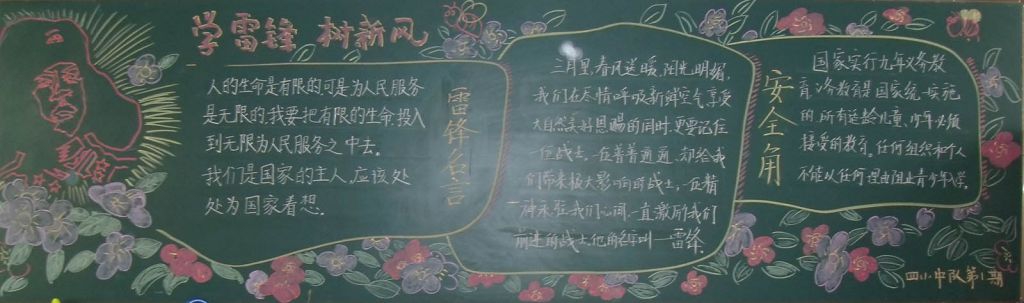 学雷锋 树新风
人的生命是有限的可是为人民服务
是无限的,我要把有限的生命投入
到无限为人民服务之中去。
我们是国家的主人,应该处
处为国家着想。
雷锋名言
三月里,春风送暖,阳光明媚,
我们在尽情呼吸新鲜空气享受
大自然美好恩赐的同时,更要记住
一位战士,一位普普通通,却给我
们带来极大影响的战士,一位精
神永驻我们心间,一直激励我们
前进的战士他的名字叫—雷锋
安全角
国家实行九年义务教
育,义务教育是国家统一实施
的,所有适龄儿童、少年必须
接受的教育。任何组织和个人
不能以任何理由阻止青少年入学。
四(1)中队第1期